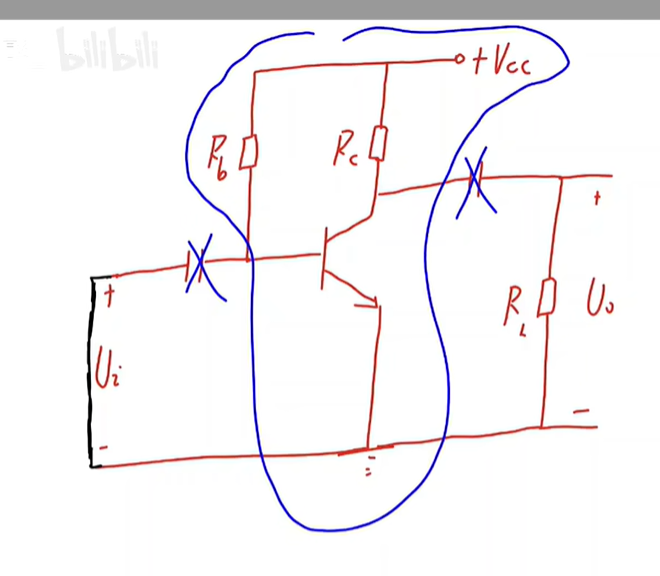 bilibili
+Vcc
Rb
Rc
+
+
Ui
RL
Uo
-
-